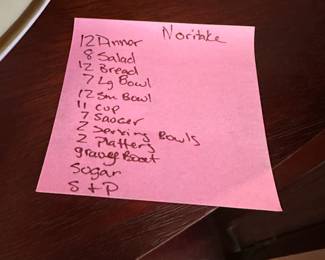 Noritake
12 Dinner
8 Salad
12 Bread
7 Lg Bowl
12 Sm Bowl
11 Cup
7 Saucer
2 Serving Bowls
2 Platters
gravy Boat
Sugar
S + P